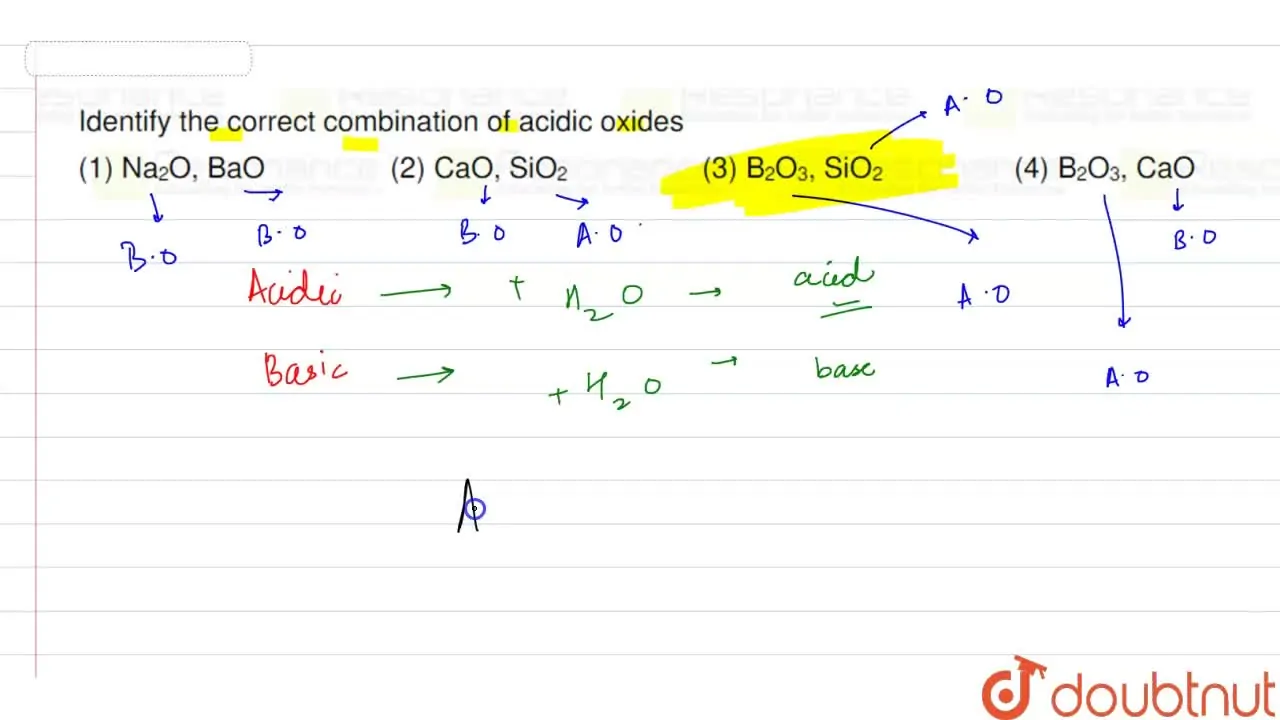 Identify the correct combination of acidic oxides
A. O
(1) Na₂O, BaO (2) CaO, SiO₂ (3) B₂O₃, SiO₂ (4) B₂O₃, CaO
B.O B. O B. O A. O A. O B. O
Acidic → + H₂O → acid
Basic → + H₂O → base
A. O
A
doubtnut